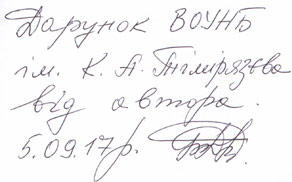 Дарунок ВОУНБ
ім. К. А. Тімірязєва
від автора.
5.09.17р.